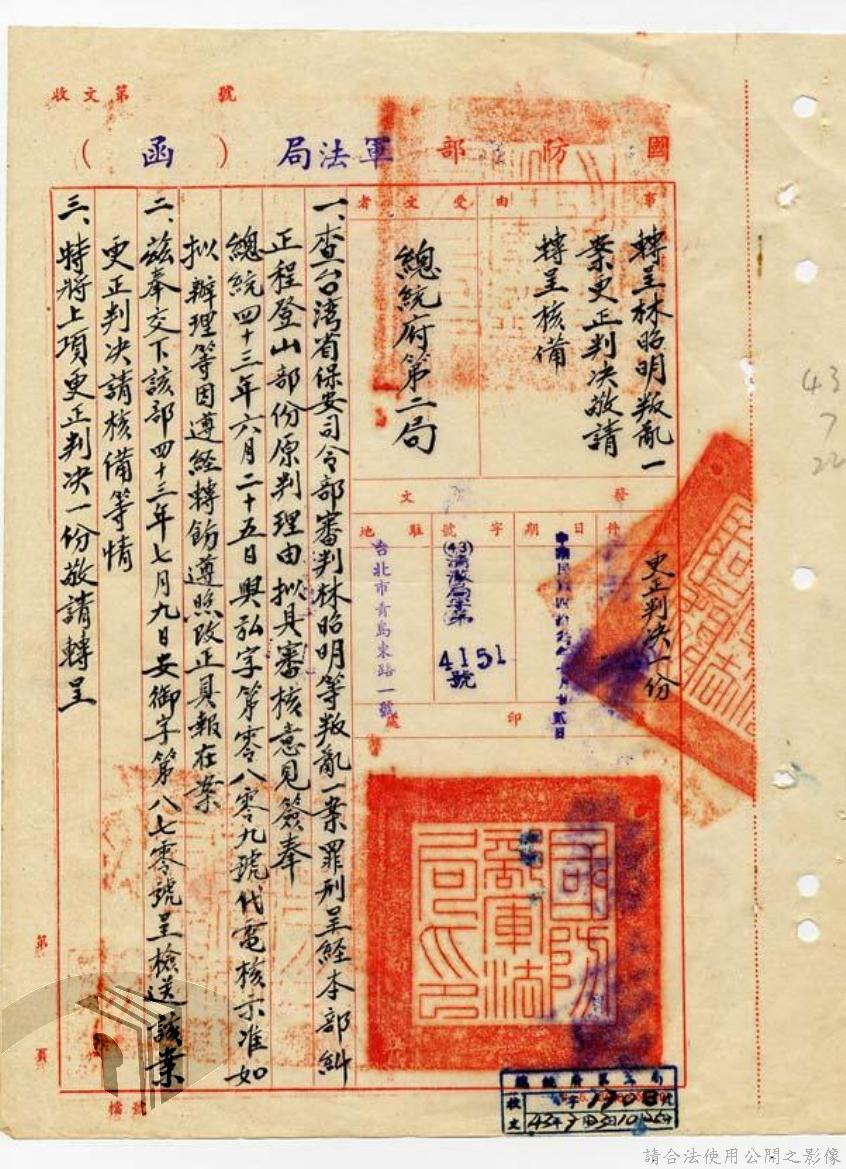 收文第 號
國防部軍法局（函）
事由
轉呈林昭明叛亂一
案更正判决敬請
轉呈核備
受文者
總統府第二局
附件
更正判决一份
發文
日期
字號
(43)清澈局字第
4151
號
駐地
台北市青島東路一號
印處
國防部軍法局印
一、查台湾省保安司令部審判林昭明等叛亂一案罪刑呈経本部糾
正程登山部份原判理由拟具審核意見簽奉
總統四十三年六月二十五日興弘字第零八零九號代電核示准如
拟辦理等因遵経轉飭遵照改正具報在案
二、兹奉交下該部四十三年七月九日安御字第八七零號呈檢送該案
更正判决請核備等情
三、特將上項更正判决一份敬請轉呈
第 頁
檔號
總統府第二局
收文
43
7
22
請合法使用公開之影像